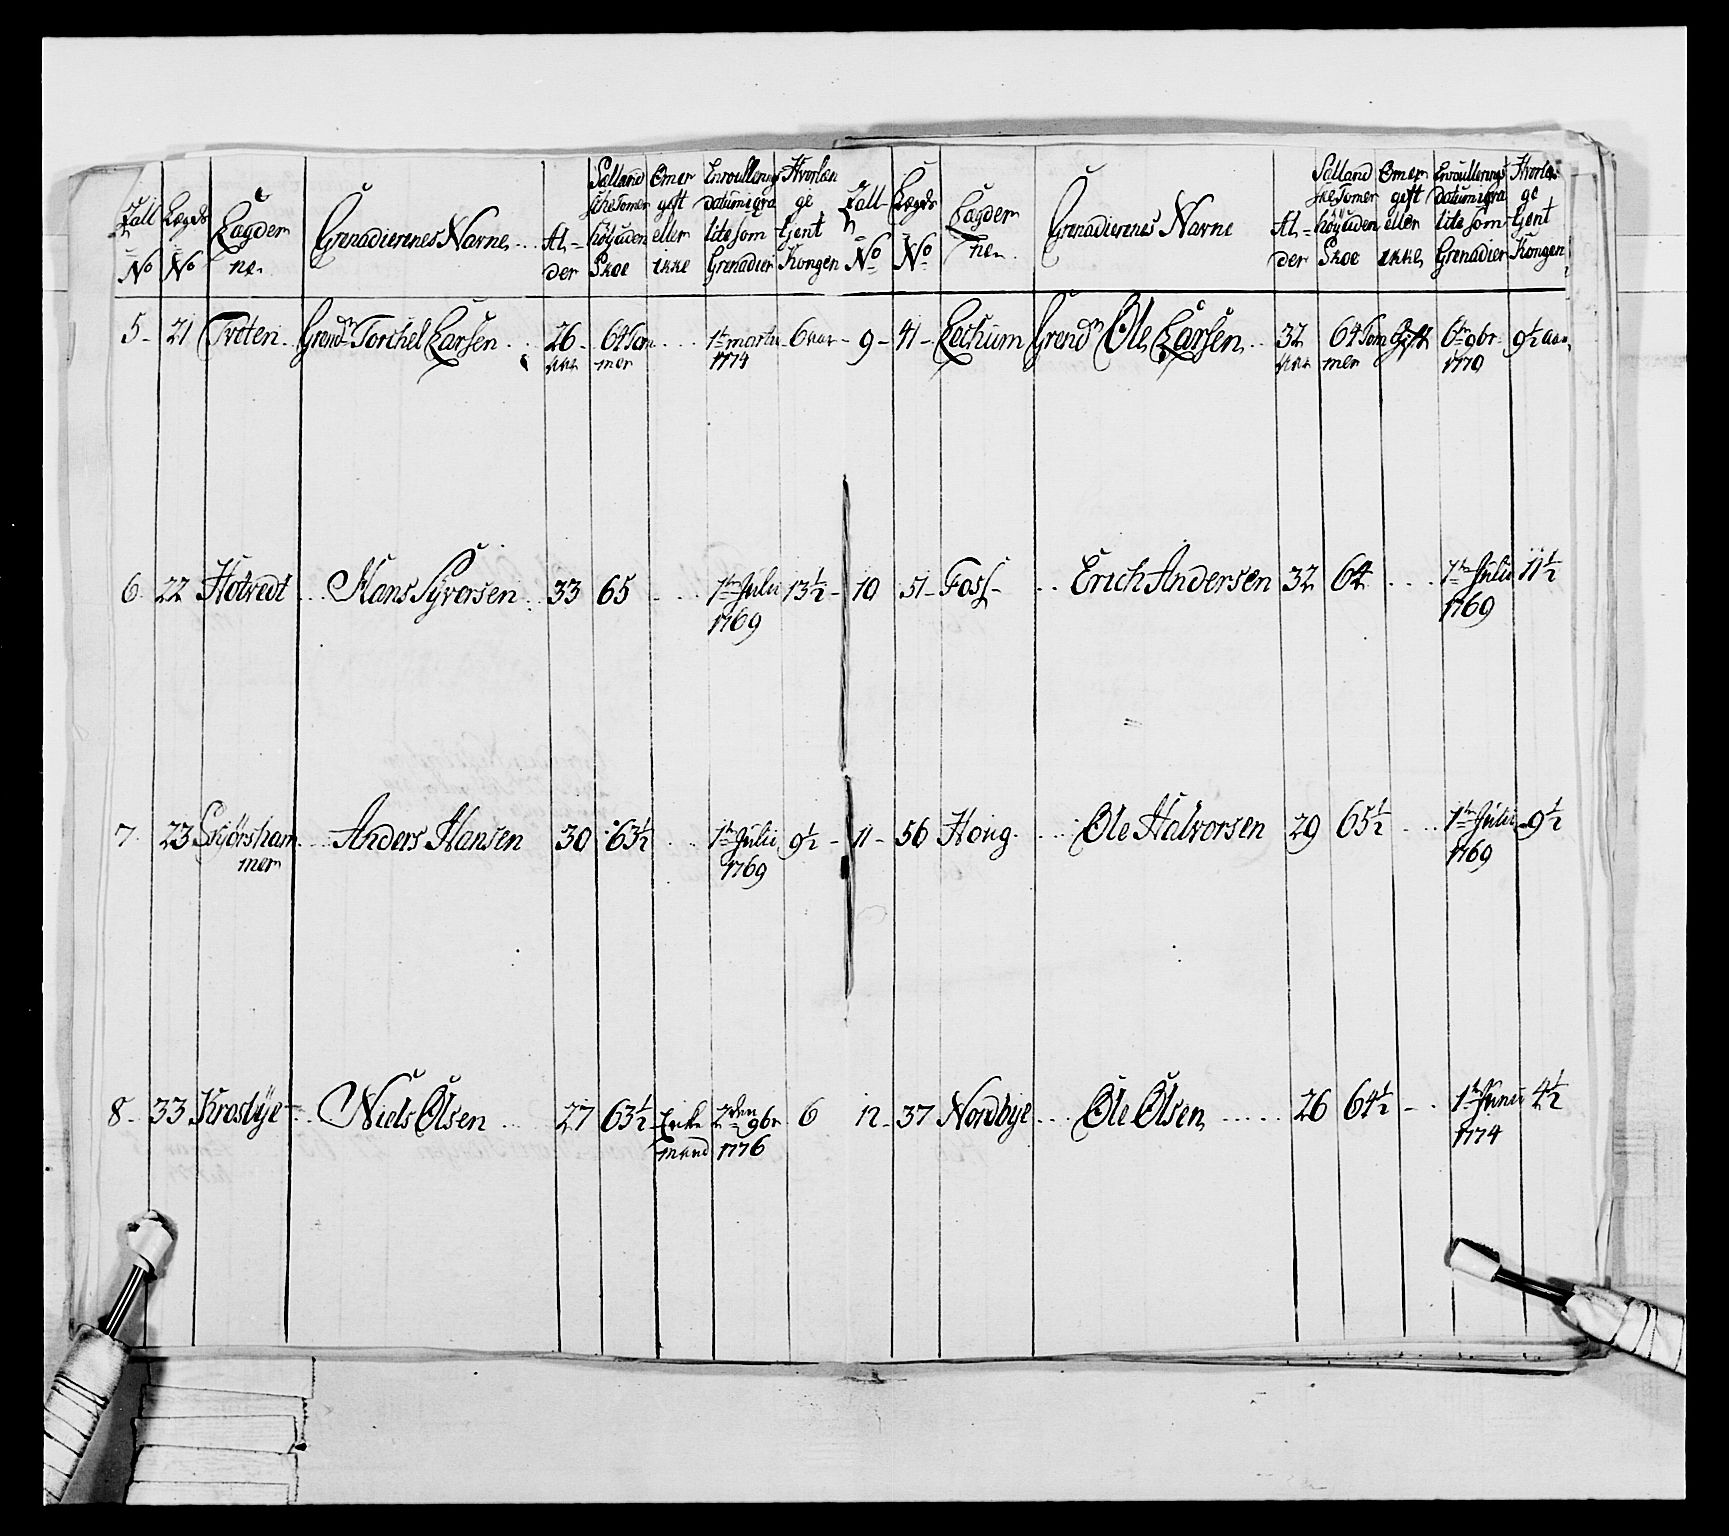 Tall No Lægds No Lagder ne Grenadierenes Navne Al- der Sælland sche Tomer höy uden Skoe Om er gift eller ikke Enroullerings datum i qva lite som Grenadier Hvorlæn ge tient Kongen
5 - 21 Tveten Grendr Torchel Larsen 26 aar 64 Tom mer 1te martii 1774 6 aar
6 22 Hotvedt Hans Syversen 33 65 1te Julii 1769 13½
7 23 Skiörsham mer Anders Hansen 30 63½ 1te Julii 1769 9½
8 - 33 Krosbye Niels Olsen 27 63½ Enke mand 2den 9br 1776 6
Tall No Lægds No Lagder ne Grenadierenes Navne Al- der Sælland ske Tomer höy uden Skoe Om er gift eller ikke Enroullerings datum i qva lite som Grenadier Hvorlæn ge tient Kongen
9 - 41 - Lechum Grendr Ole Larsen 32 aar 64 Tom mer Gift 6te 9br 1770 9½ aar
10 51 - Foss - Erich Andersen 32 64 1te Julii 1769 11½
11 - 56 Hong Ole Halvorsen 29 65½ 1te Julii 1769 9½
12 - 37 Nordbye Ole Olsen 26 64½ 1te Junii 1774 4½